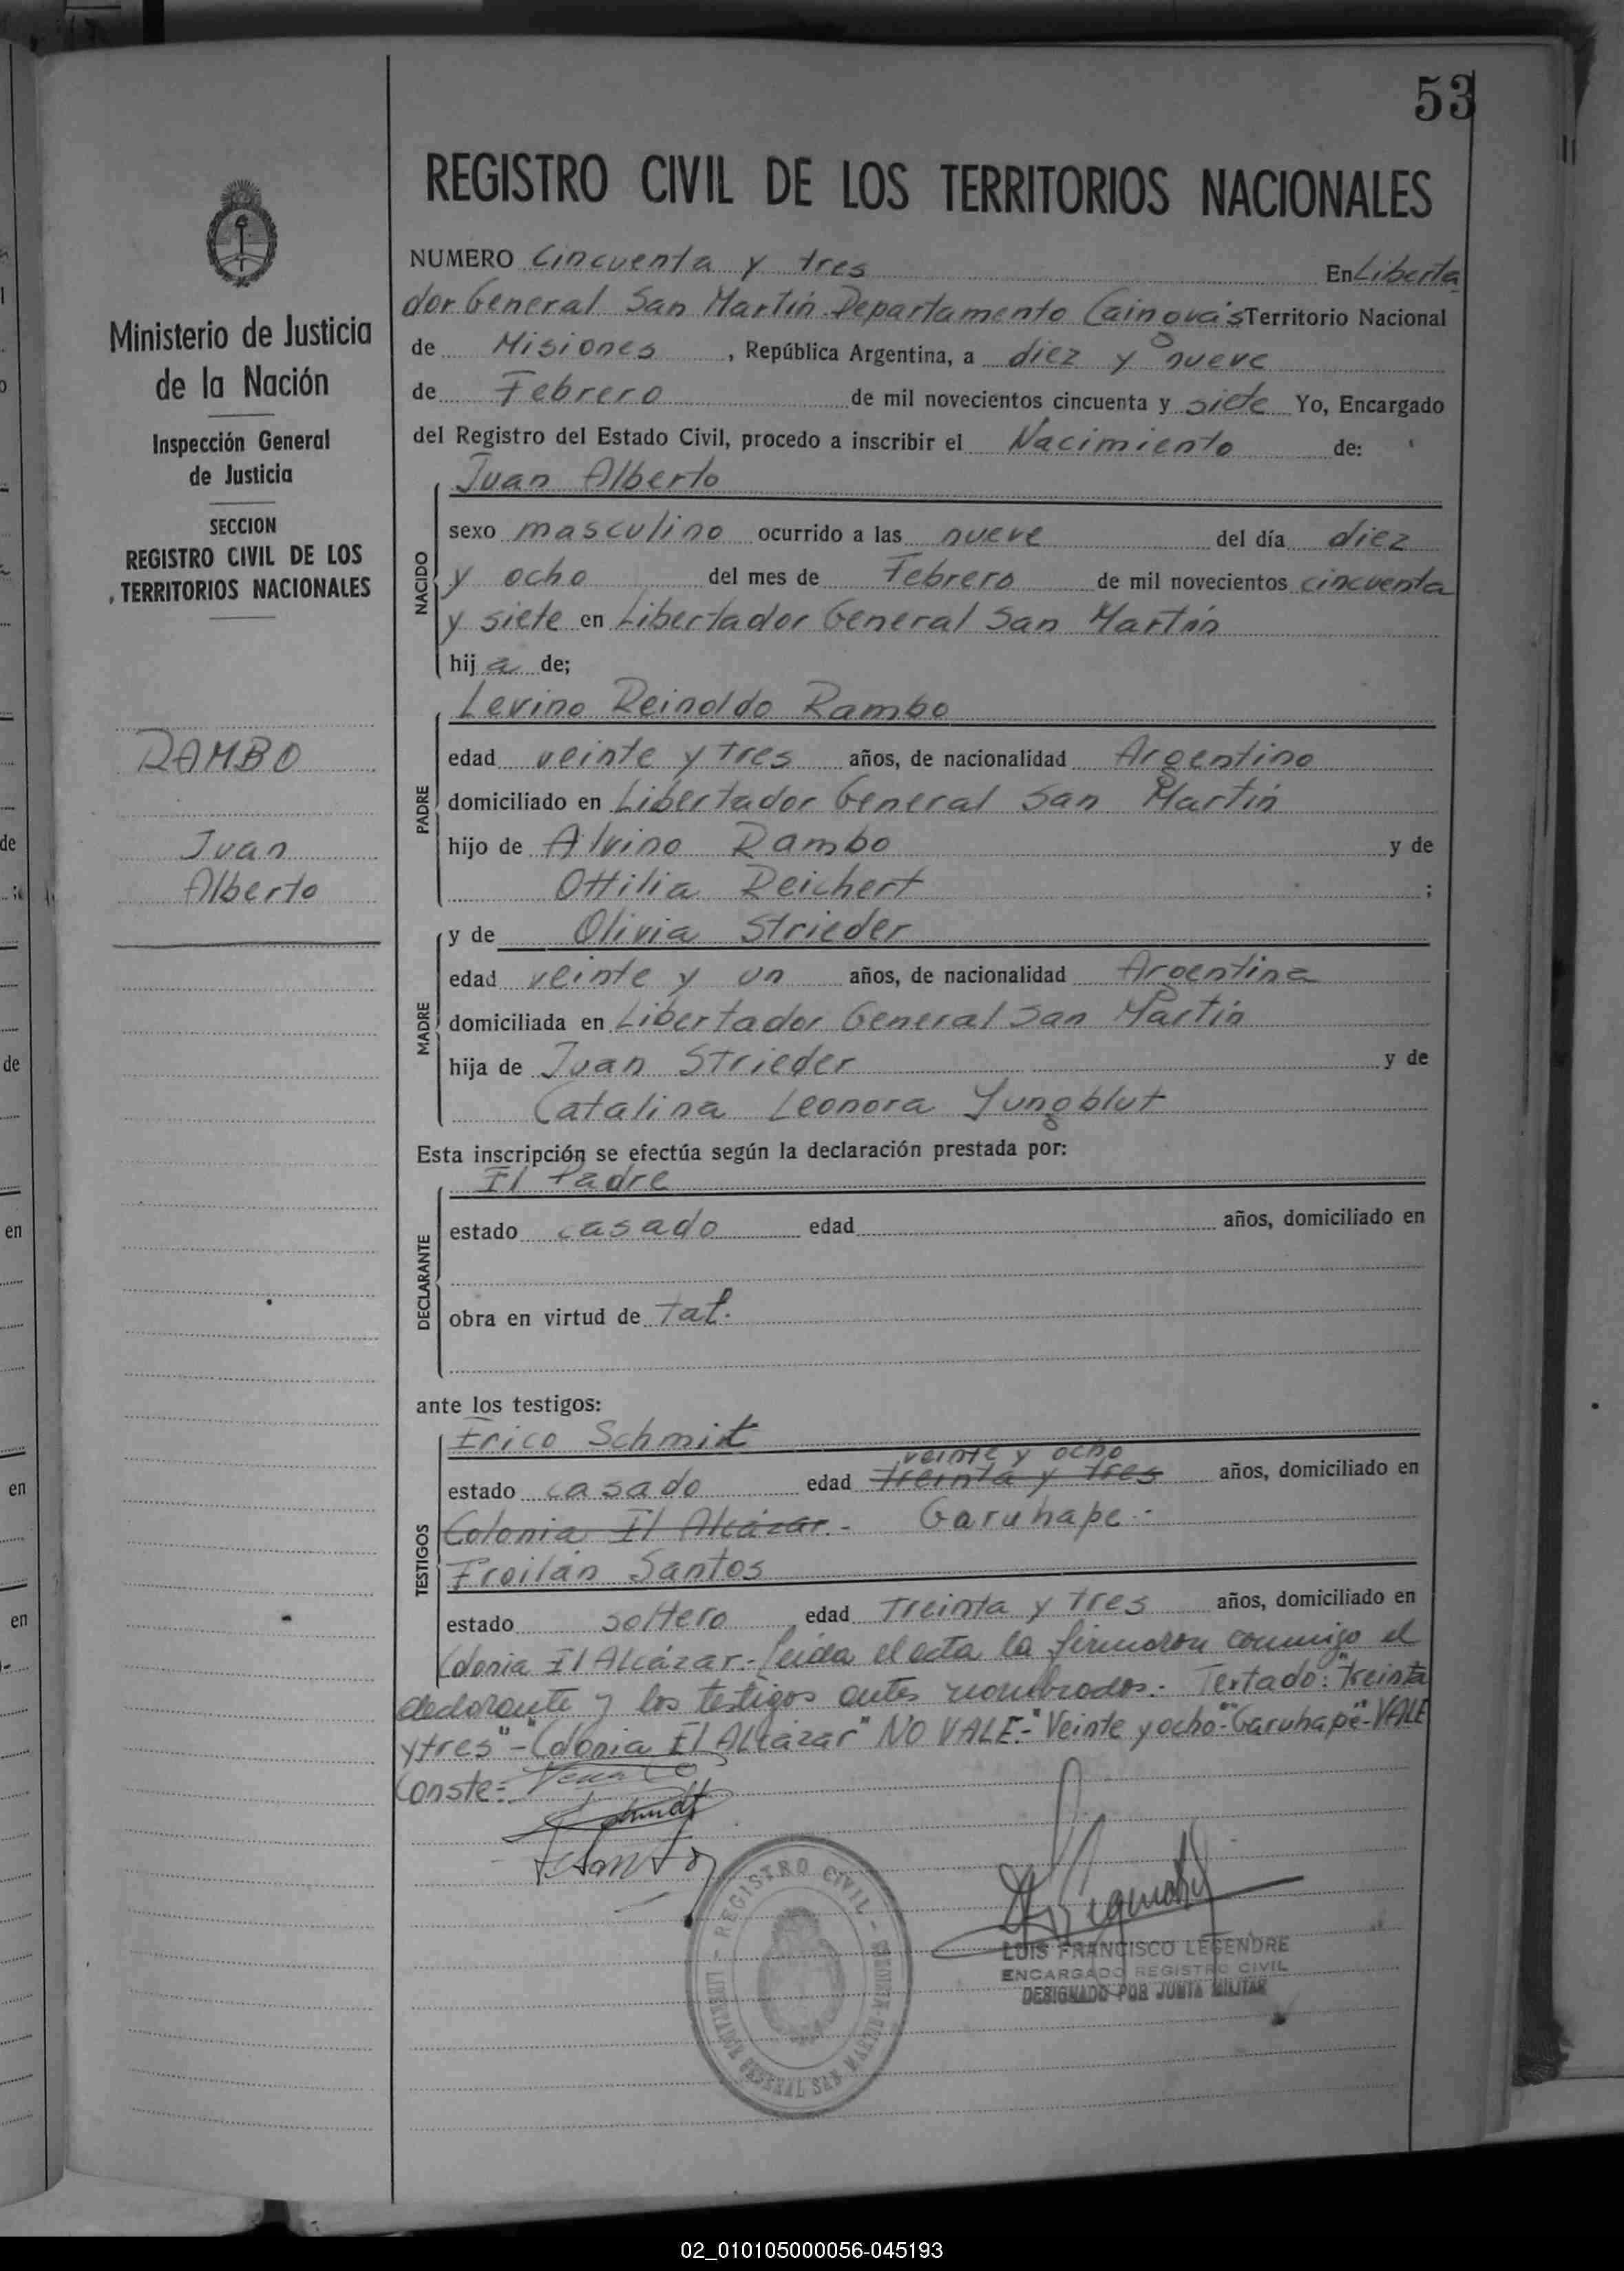 53
REGISTRO CIVIL DE LOS TERRITORIOS NACIONALES
Ministerio de Justicia
de la Nación
Inspección General
de Justicia
SECCION
REGISTRO CIVIL DE LOS
TERRITORIOS NACIONALES
RAMBO
Juan
Alberto
NUMERO Cincuenta y tres En Liberta
dor General San Martin Departamento Cainguá's Territorio Nacional
de Misiones, República Argentina, a diez y nueve
de Febrero de mil novecientos cincuenta y siete Yo, Encargado
del Registro del Estado Civil, procedo a inscribir el Nacimiento de:
Juan Alberto
NACIDO
sexo masculino ocurrido a las nueve del día diez
y ocho del mes de Febrero de mil novecientos cincuenta
y siete en Libertador General San Martín
hij a de;
Levino Reinoldo Rambo
PADRE
edad veinte y tres años, de nacionalidad Argentino
domiciliado en Libertador General San Martín
hijo de Alvino Rambo y de
Ottilia Reichert ;
y de Olivia Strieder
MADRE
edad veinte y un años, de nacionalidad Argentina
domiciliada en Libertador General San Martín
hija de Juan Strieder y de
Catalina Leonora Yungblut
Esta inscripción se efectúa según la declaración prestada por:
El Padre
DECLARANTE
estado casado edad años, domiciliado en
obra en virtud de tal.
ante los testigos:
Erico Schmidt
TESTIGOS
veinte y ocho
estado casado edad treinta y tres años, domiciliado en
Colonia El Alcázar.- Garuhape.-
Froilán Santos
estado soltero edad Treinta y tres años, domiciliado en
Colonia El Alcázar.- Leida el acta la firmaron conmigo el
declarante y los testigos antes nombrados.- Textado: "treinta
y tres"-"Colonia El Alcázar" NO VALE.-"Veinte y ocho"-"Garuhape"-VALE
Conste:-
REGISTRO CIVIL
LIBERTADOR GENERAL SAN MARTIN
LUIS FRANCISCO LEGENDRE
ENCARGADO REGISTRO CIVIL
DESIGNADO POR JUNTA MILITAR
de
de
en
en
en
02_010105000056-045193